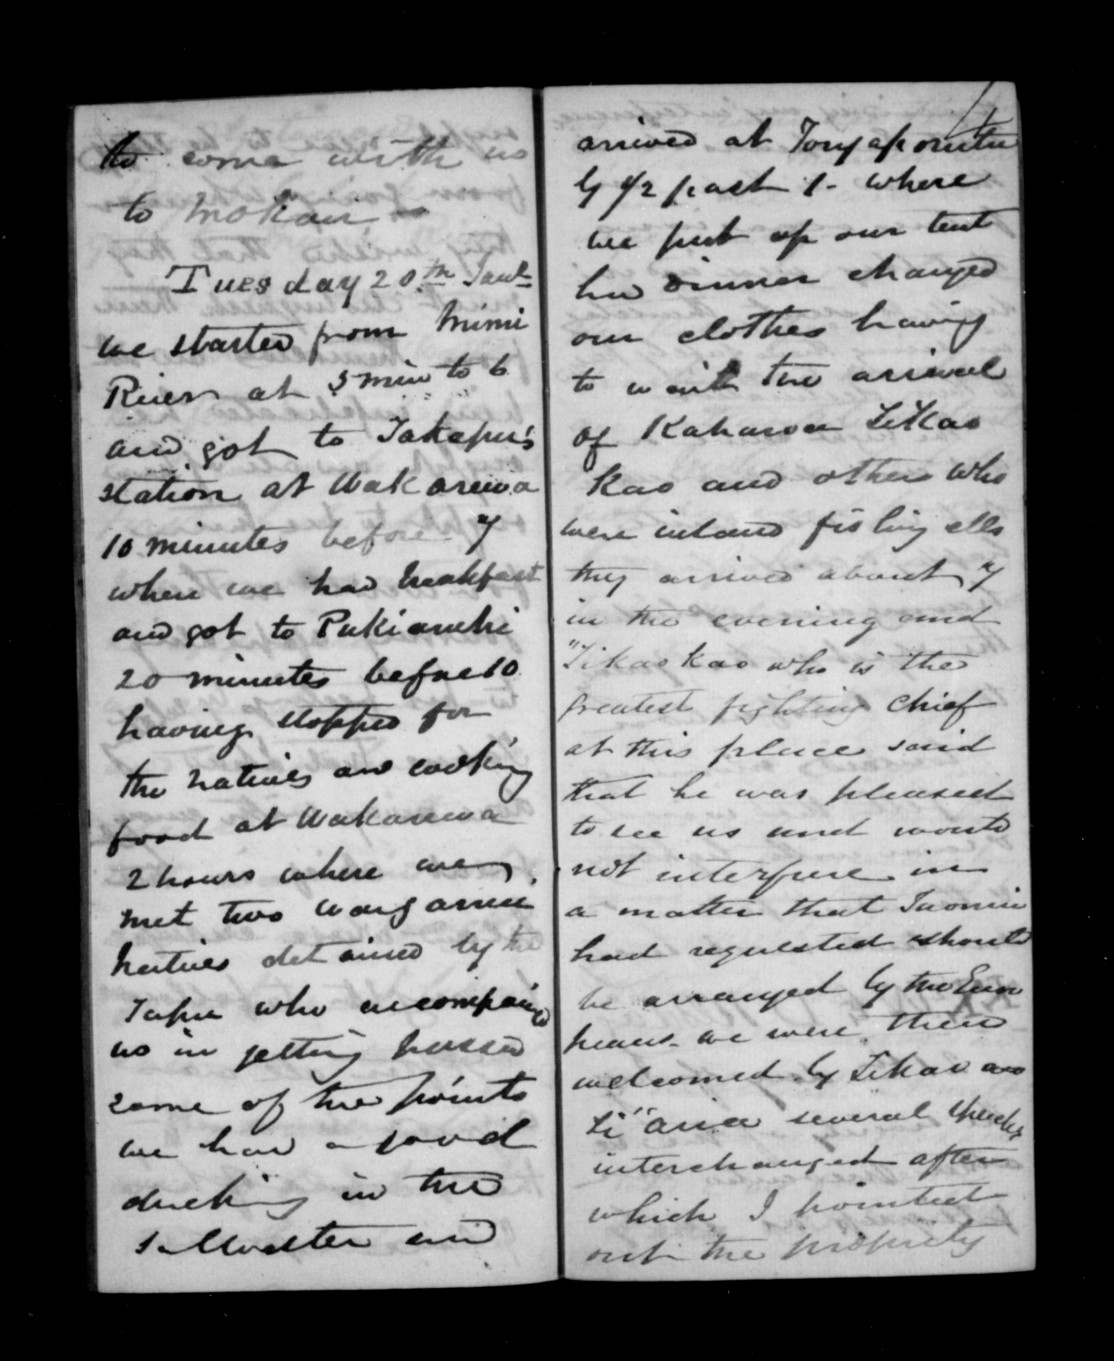 to come with us
to Mokau
Tuesday 20th Jany
we started from Mimi
River at 5 min to 6
and got to Takapu's
station at Wakarewa
10 minutes before 7
where we had breakfast
and got to Pukiaruhi
20 minutes before 10
having stopped for
the natives and cooking
food at Wakarewa
2 hours where we
met two
natives detained by the
Tapu who accompanied
us in getting passed
some of the points
we had a good
ducking in the
saltwater and
arrived at Tongaporutu
by 1/2 past 1 - where
we put up our tent
had dinner changed
our clothes having
to wait the arrival
of Kaharoa Tikao
kao and others who
were inland fishing eels
they arrived about 7
in the evening and
"Tikaokao who is the
greatest fighting chief
at this place said
that he was pleased
to see us and would
not interfere in
a matter that
had requested should
be arranged by the Euro
peans. we were then
welcomed by Tikao and
several speeches
interchanged after
which I pointed
out the propriety